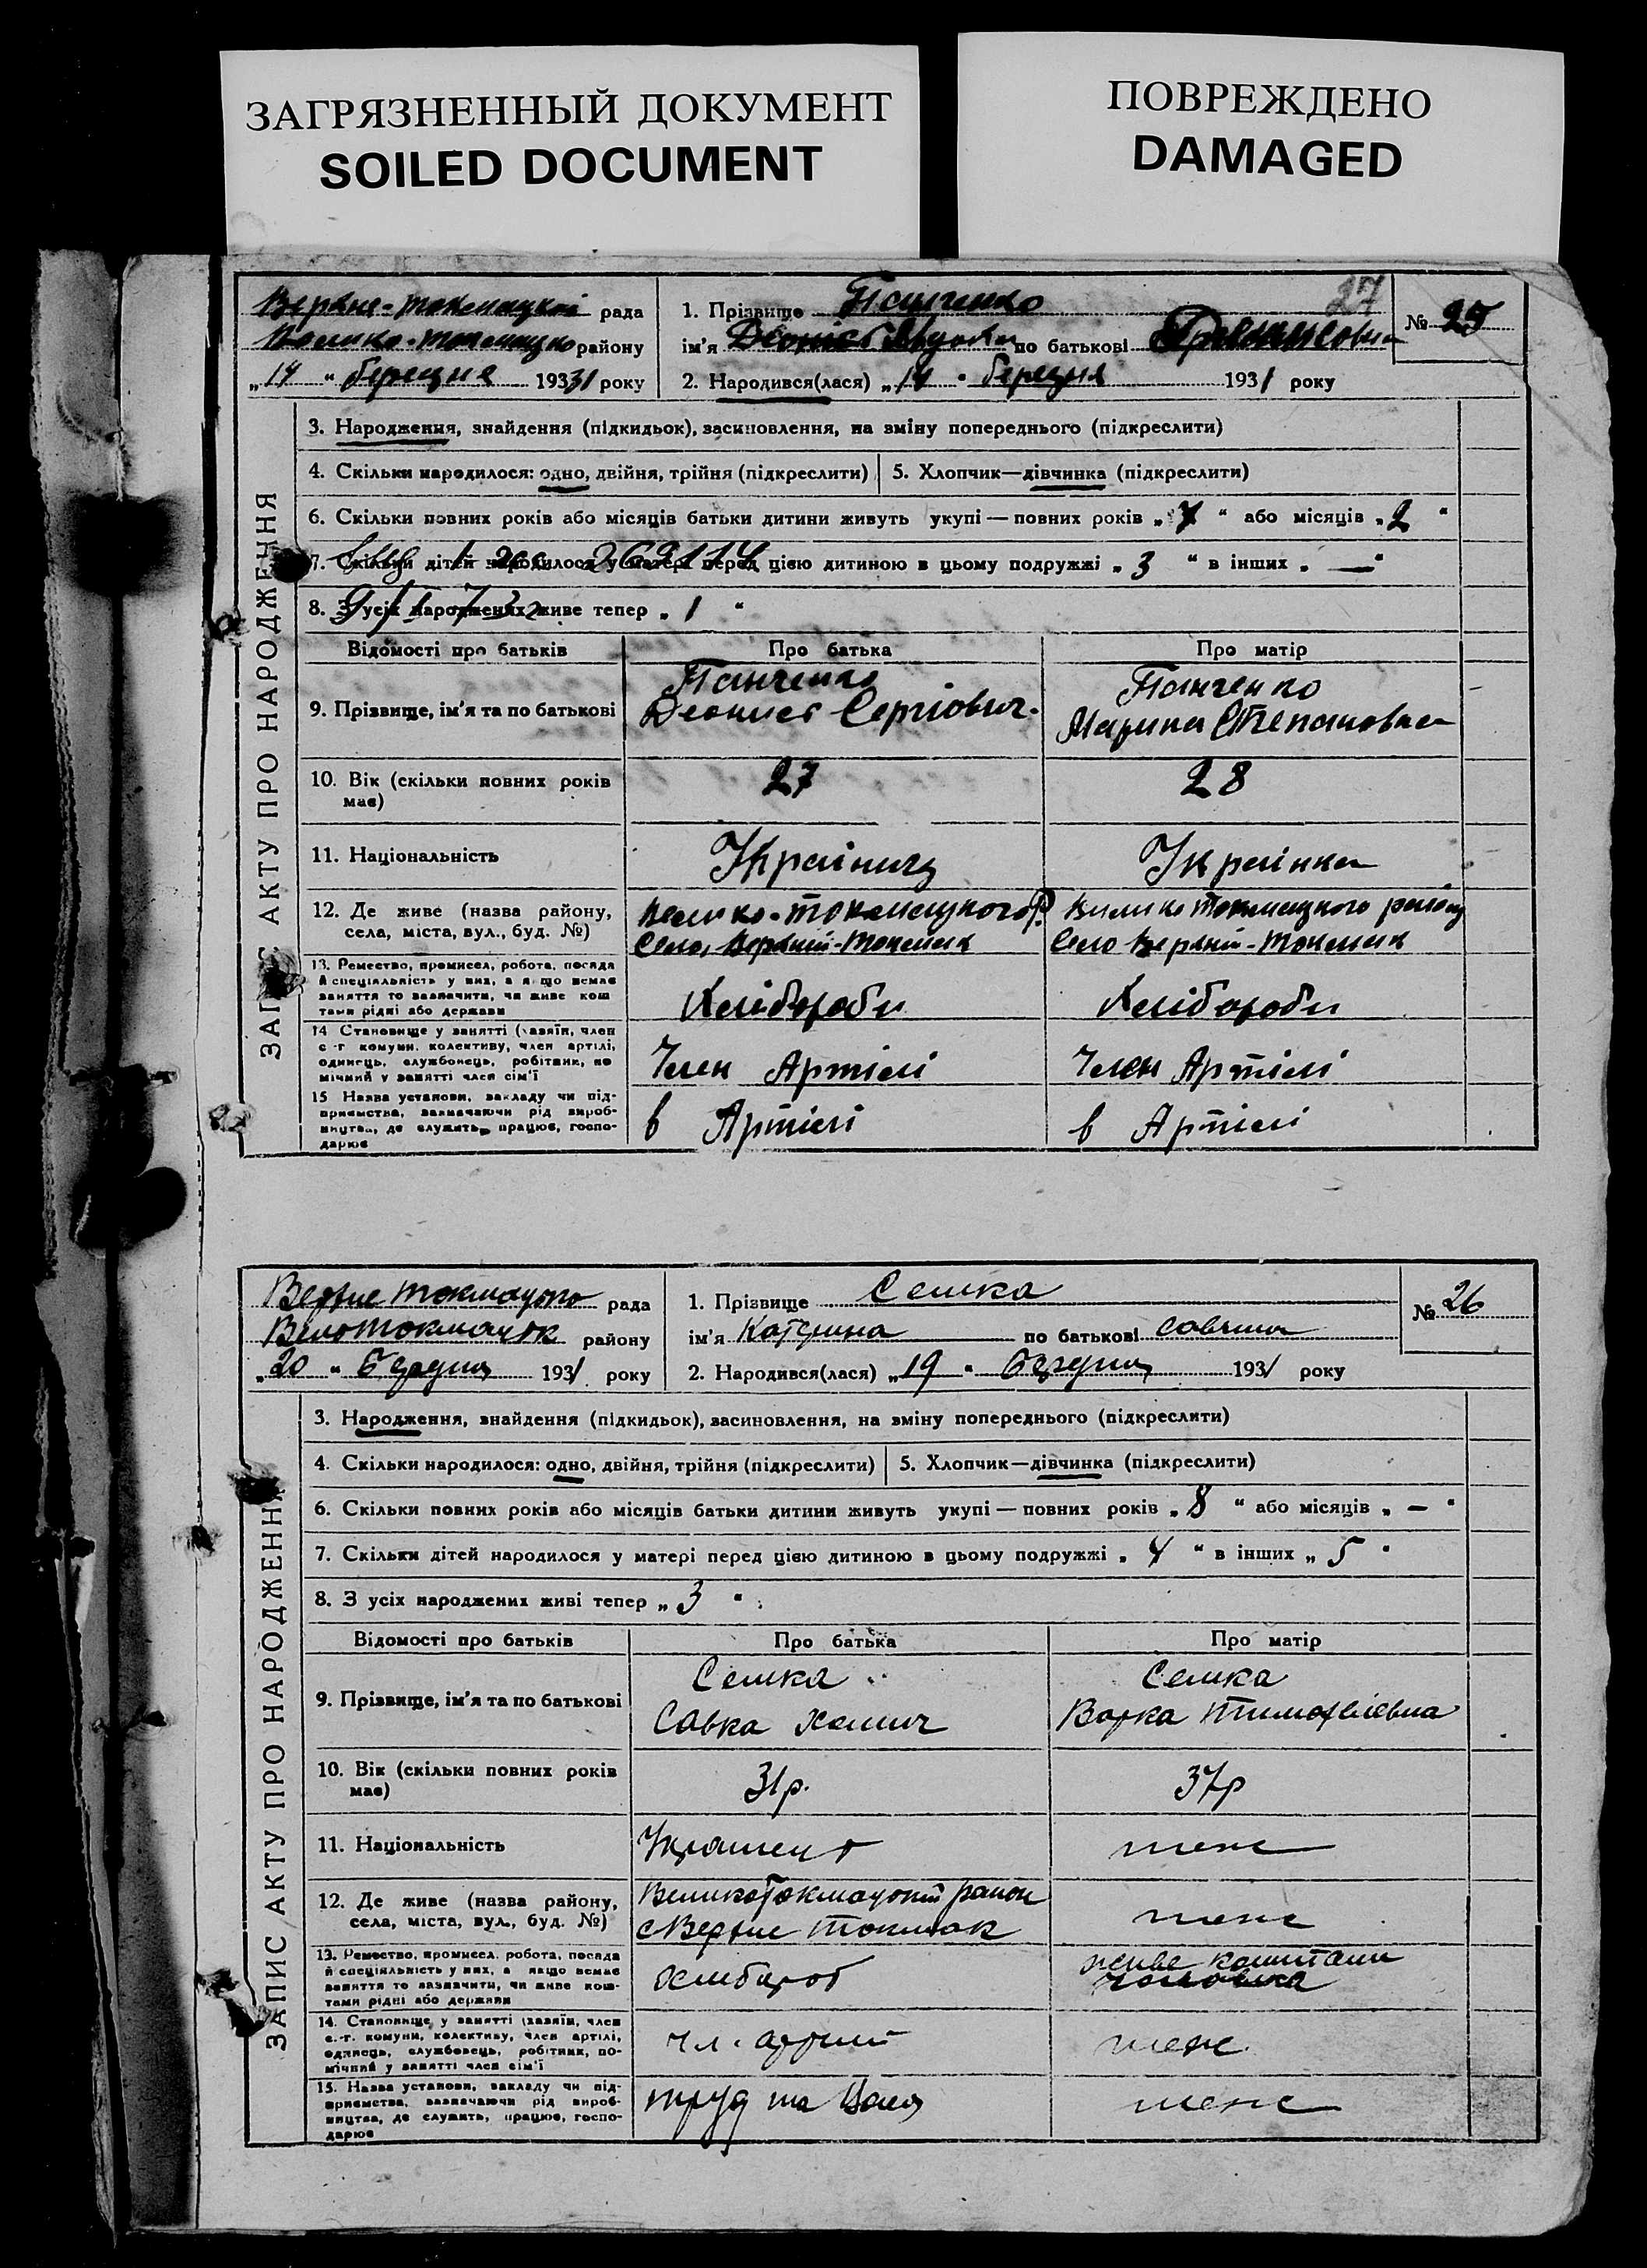 ЗАГРЯЗНЕННЫЙ ДОКУМЕНТ
SOILED DOCUMENT
ПОВРЕЖДЕНО
DAMAGED
27
Верхне-Токмацкої рада
Велико-Токмацко району
„14“ березня 1931 року
1. Прізвище Панченко
ім'я по батькові
№ 25
2. Народився(лася) „14“ березня 1931 року
ЗАПИС АКТУ ПРО НАРОДЖЕННЯ
3. Народження, знайдення (підкидьок), засиновлення, на зміну попереднього (підкреслити)
4. Скільки народилося: одно, двійня, трійня (підкреслити)
5. Хлопчик—дівчинка (підкреслити)
6. Скільки повних років або місяців батьки дитини живуть укупі — повних років „7“ або місяців „2“
7. Скільки дітей народилося у матері перед цією дитиною в цьому подружжі „3“ в інших „—“
8. З усіх народжених живе тепер „1“
Відомості про батьків
Про батька
Про матір
9. Прізвище, ім'я та по батькові
Панченко
Деонис Сергіович.
Панченко
Марина Степановна
10. Вік (скільки повних років має)
27
28
11. Національність
Українец
Українка
12. Де живе (назва району, села, міста, вул., буд. №)
Велико-Токмацкого Р.
Село Верхній-Токмак
Велико Токмацкого району
Село Верхній-Токмак
13. Ремество, промисел, робота, посада й спеціяльність у них, а якщо немає заняття то зазначити, чи живе коштами рідні або держави
Хліборобы
Хліборобы
14 Становище у занятті (хазяїн, член с.-г. комуни, колективу, член артілі, одинець, службовець, робітник, помічний у занятті член сім'ї
Член Артілі
Член Артілі
15 Назва установи, закладу чи підприємства, зазначаючи рід виробництва, де служить, працює, господарює
в Артілі
в Артілі
Верхне Токмацко рада
Велотокмачок району
„20“ Березня 1931 року
1. Прізвище Семка
ім'я Катерина по батькові
№ 26
2. Народився(лася) „19“ Березня 1931 року
ЗАПИС АКТУ ПРО НАРОДЖЕННЯ
3. Народження, знайдення (підкидьок), засиновлення, на зміну попереднього (підкреслити)
4. Скільки народилося: одно, двійня, трійня (підкреслити)
5. Хлопчик—дівчинка (підкреслити)
6. Скільки повних років або місяців батьки дитини живуть укупі — повних років „8“ або місяців „—“
7. Скільки дітей народилося у матері перед цією дитиною в цьому подружжі „4“ в інших „5“
8. З усіх народжених живі тепер „3“
Відомості про батьків
Про батька
Про матір
9. Прізвище, ім'я та по батькові
Семка
Савка
Семка
Варка Тимофеієвна
10. Вік (скільки повних років має)
31р.
37р
11. Національність
теж
12. Де живе (назва району, села, міста, вул., буд. №)
ВеликоТокмацкий район
с Верхне Токмак
теж
13. Ремество, промисел, робота, посада й спеціяльність у них, а якщо немає заняття то зазначити, чи живе коштами рідні або держави
хлибороб
живе коштами
чоловіка
14. Становище у занятті (хазяїн, член с.-г. комуни, колективу, член артілі, одинець, службовець, робітник, помічний у занятті член сім'ї
чл. артили
теж
15. Назва установи, закладу чи підприємства, зазначаючи рід виробництва, де служить, працює, господарює
труд та
теж